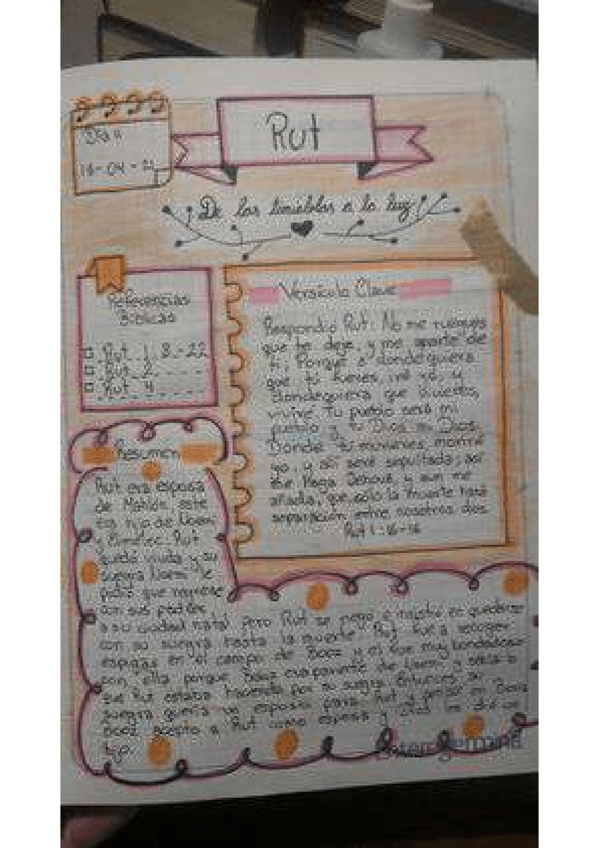 Día 11
16-04-21
Rut
De las tinieblas a la luz
Referencias
Bíblicas
Rut 1 8-22
Rut 2
Rut 4
Versículo Clave
Respondió Rut: No me ruegues
que te deje, y me aparte de
ti; Porque a dondequiera
que tú fueres, iré yo, y
dondequiera que vivieres,
viviré. Tu pueblo será mi
pueblo y tu Dios mi Dios.
Donde tú murieres, moriré
yo, y allí seré sepultada; así
me haga Jehová, y aun me
añada, que sólo la muerte hará
separación entre nosotras dos.
Rut 1:16-
Resumen
Rut era esposa
de Mahlón, este
era hijo de Noemí
y Elimelec. Rut
quedó viuda y su
suegra Noemí le
pidió que regrese
con sus padres
a su ciudad natal pero Rut se negó e insistió en quedarse
con su suegra hasta la muerte. Rut fue a recoger
espigas en el campo de Booz y él fue muy bondadoso
con ella porque Booz era pariente de Noemí y sabía lo
que Rut estaba haciendo por su suegra. Entonces su
suegra quería un esposo para Rut y pensó en Booz
Booz aceptó a Rut como esposa y Dios les dio un
hijo.